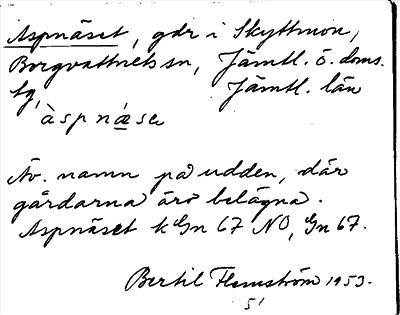 Aspnäset, gdr i Skyttmon,
Borgvattnets sn, Jämtl. ö. doms.
tg, Jämtl. län
àspnǽsɛ
Äv. namn på udden, där
gårdarna äro belägna.
Aspnäset k Gn 67 NO, Gn 67.
Bertil Flemström 1953.
51